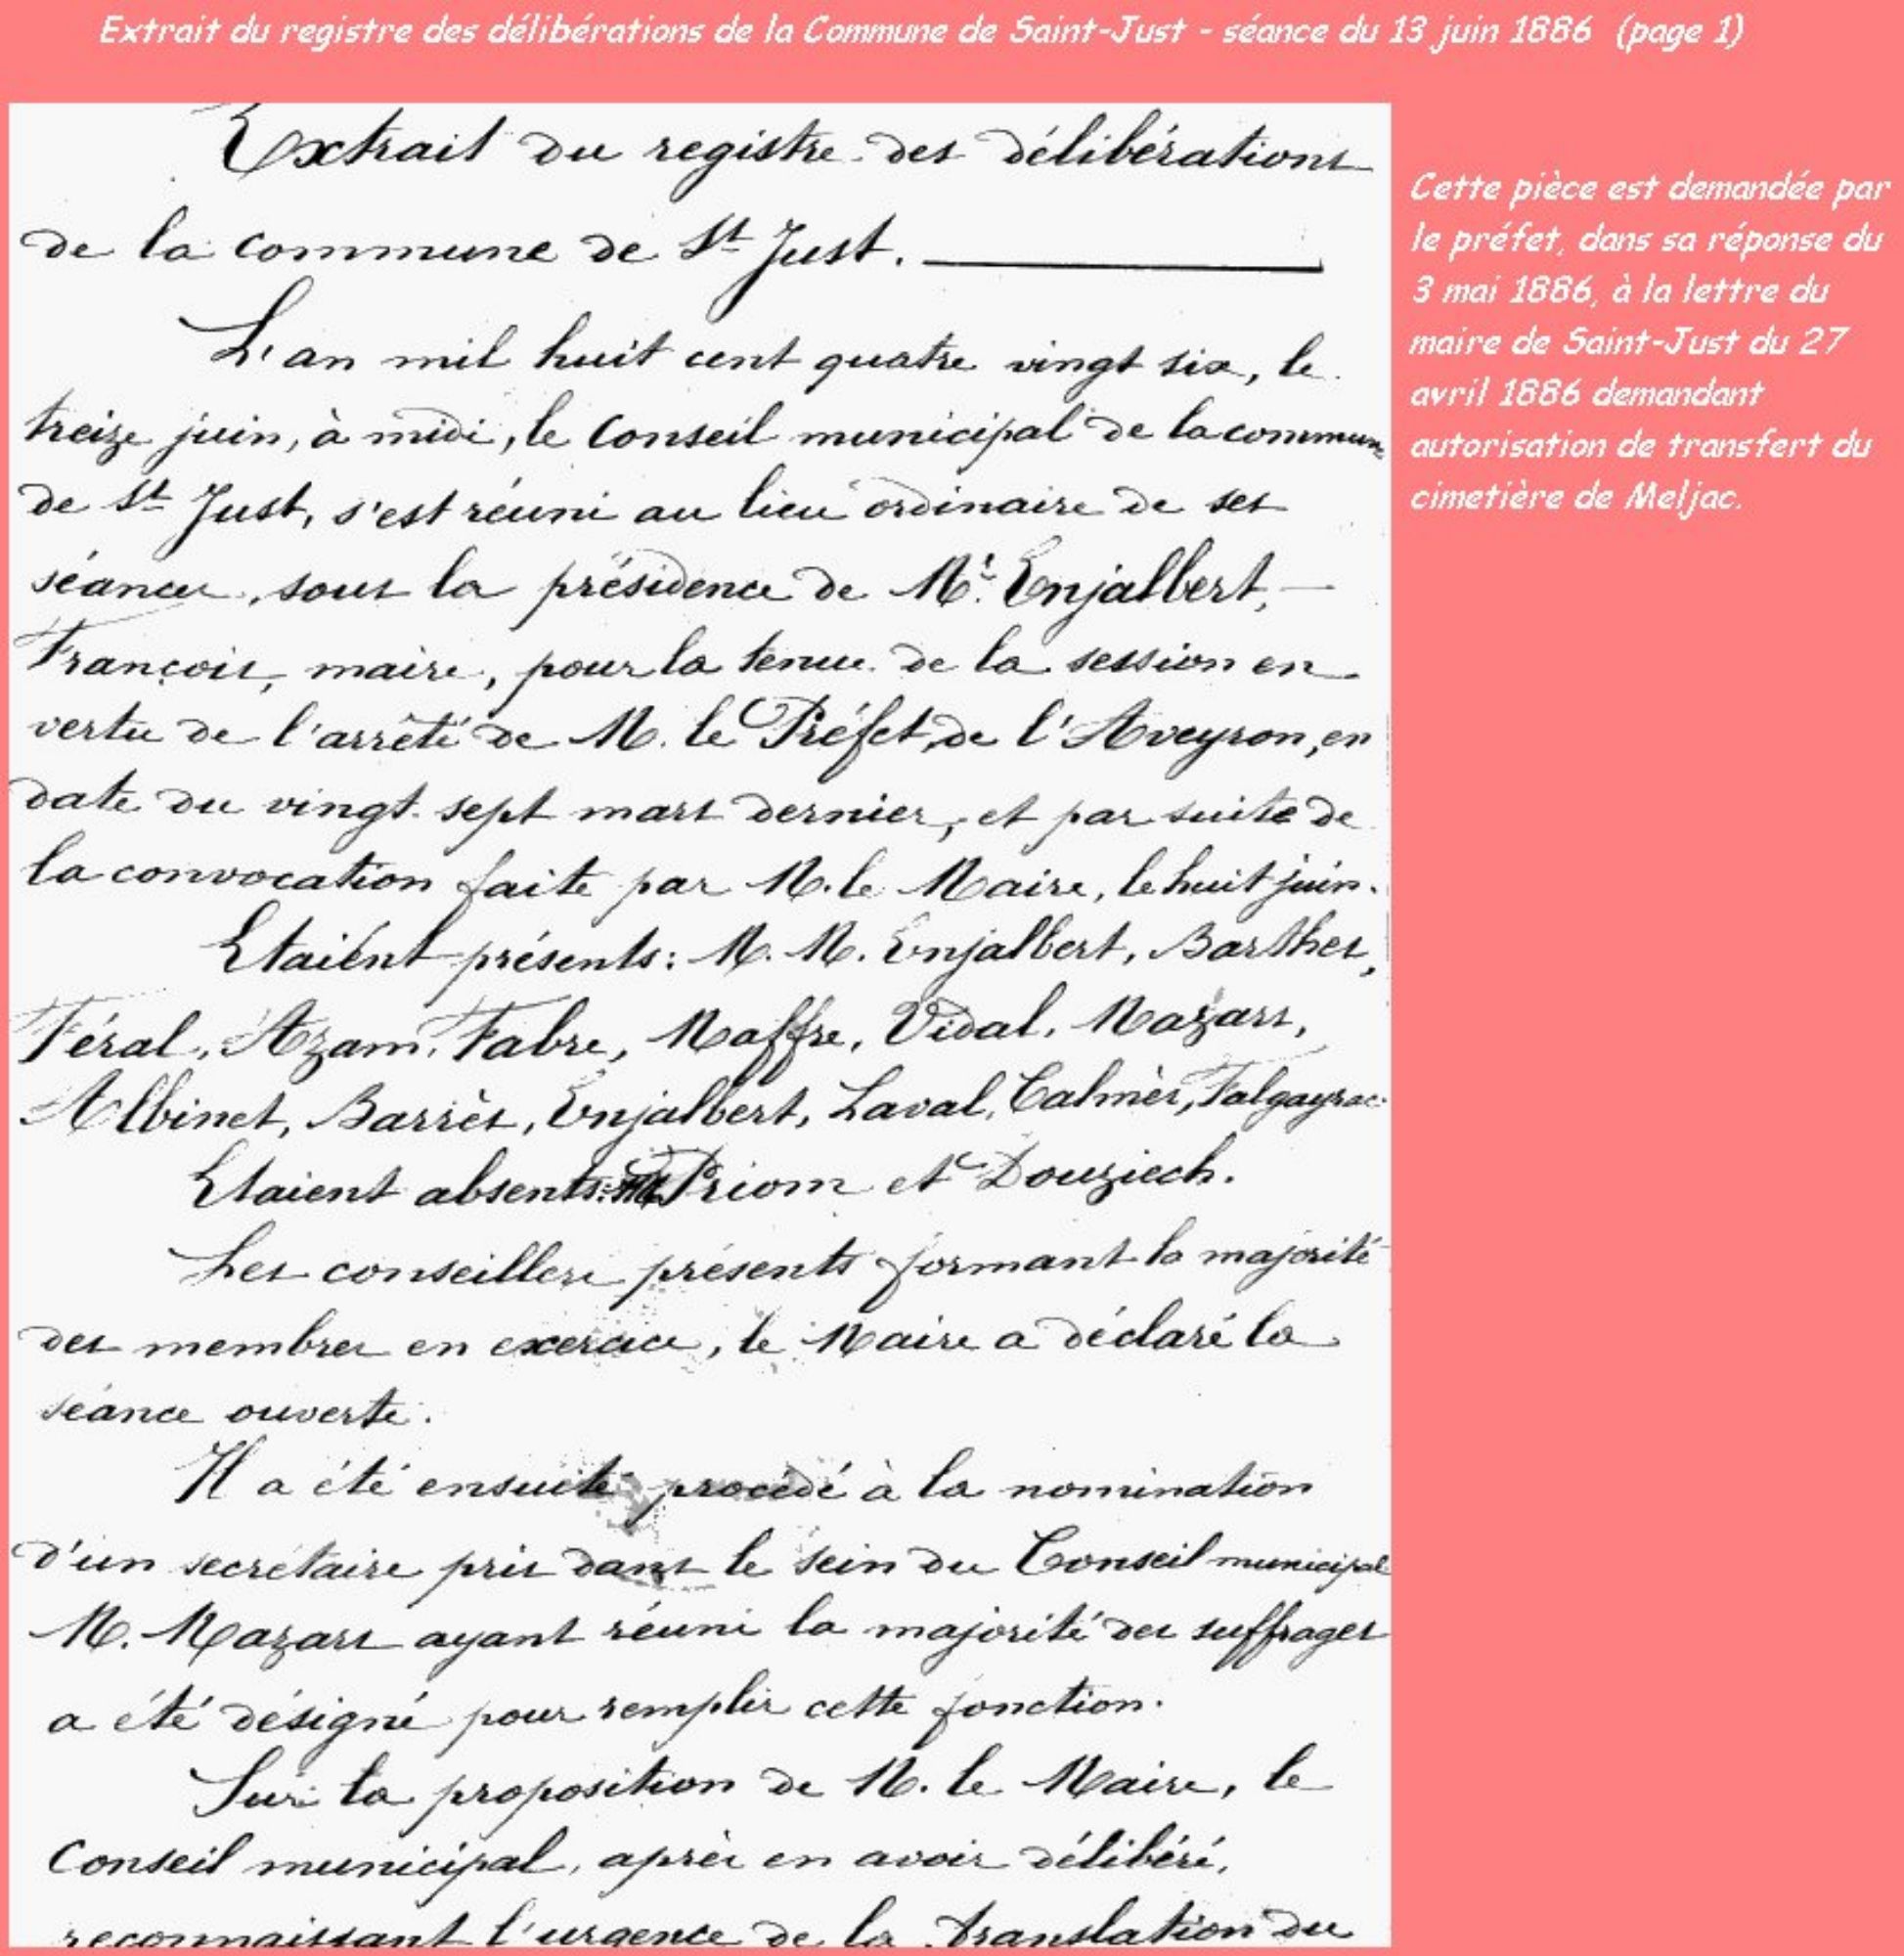 Extrait du registre des délibérations de la Commune de Saint-Just - séance du 13 juin 1886 (page 1)
Extrait du registre des délibérations
de la commune de St Just.
L'an mil huit cent quatre vingt six, le
treize juin, à midi, le Conseil municipal de la commune
de St Just, s'est réuni au lieu ordinaire de ses
séances, sous la présidence de Mr. Enjalbert,
François, maire, pour la tenue de la session en
vertu de l'arrêté de M. le Préfet de l'Aveyron, en
date du vingt-sept mars dernier, et par suite de
la convocation faite par M. le Maire, le huit juin.
Etaient présents: M. M. Enjalbert, Barthes,
Féral, Azam, Fabre, Maffre, Vidal, Mazars,
Albinet, Barrès, Enjalbert, Laval, Calmès, Falgayrac.
Etaient absents: Priom et Douziech.
Les conseillers présents formant la majorité
des membres en exercice, le Maire a déclaré la
séance ouverte.
Il a été ensuite procédé à la nomination
d'un secrétaire pris dans le sein du Conseil municipal
M. Mazars ayant réuni la majorité des suffrages
a été désigné pour remplir cette fonction.
Sur la proposition de M. le Maire, le
Conseil municipal, après en avoir délibéré,
reconnaissant l'urgence de la translation du
Cette pièce est demandée par
le préfet, dans sa réponse du
3 mai 1886, à la lettre du
maire de Saint-Just du 27
avril 1886 demandant
autorisation de transfert du
cimetière de Meljac.